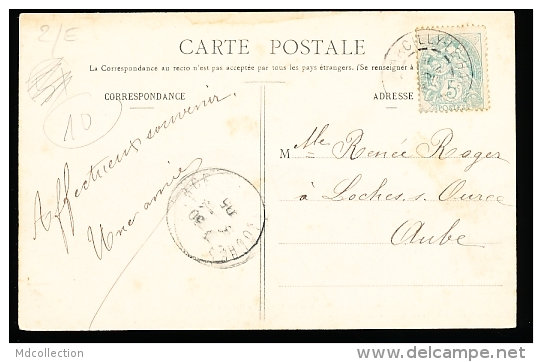 2/E
CARTE POSTALE
La Correspondance au recto n'est pas acceptée par tous les pays étrangers. (Se renseigner à
CORRESPONDANCE
ADRESSE
10
Affectueux souvenir.
Une amie
Mlle Renée Roger
à Loches s. Ource
Aube
5c
Mdcollection
www.delcampe.net